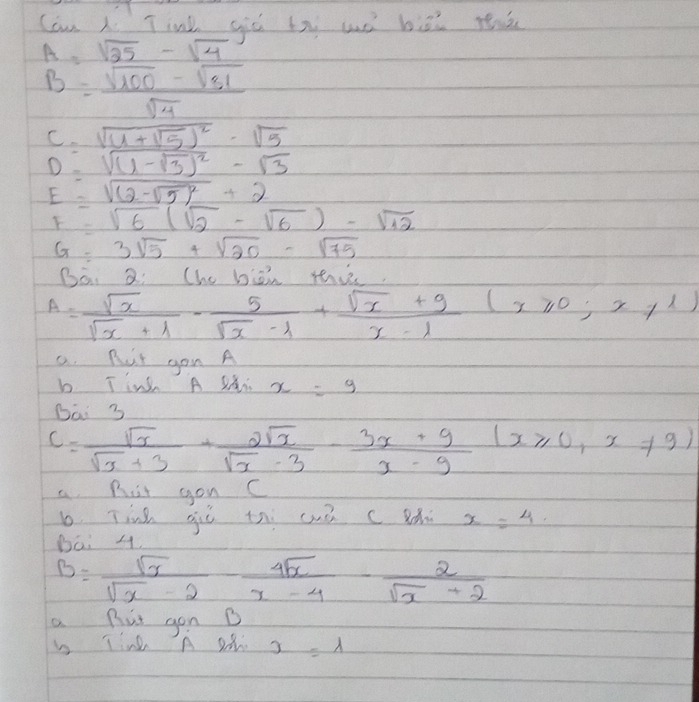 Câu 1. Tính giá trị của biểu thức
A = √25 - √4
B = (√100 - √81) / √4
C = √(4 + √5)² - √5
D = √(1 - √3)² - √3
E = √(2 - √5)² + 2
F = √6 (√2 - √6) - √12
G = 3√5 + √20 - √75
Bài 2: Cho biểu thức.
A = √x / (√x + 1) - 5 / (√x - 1) + (√x + 9) / (x - 1) (x ⩾ 0; x ≠ 1)
a. Rút gọn A
b Tính A khi x = 9
Bài 3
C = √x / (√x + 3) + 2√x / (√x - 3) - (3x + 9) / (x - 9) (x ⩾ 0, x ≠ 9)
a. Rút gọn C
b. Tính giá trị của C khi x = 4.
Bài 4.
B = √x / (√x - 2) - 4√x / (x - 4) - 2 / (√x + 2)
a Rút gọn B
b Tính A khi x = 1